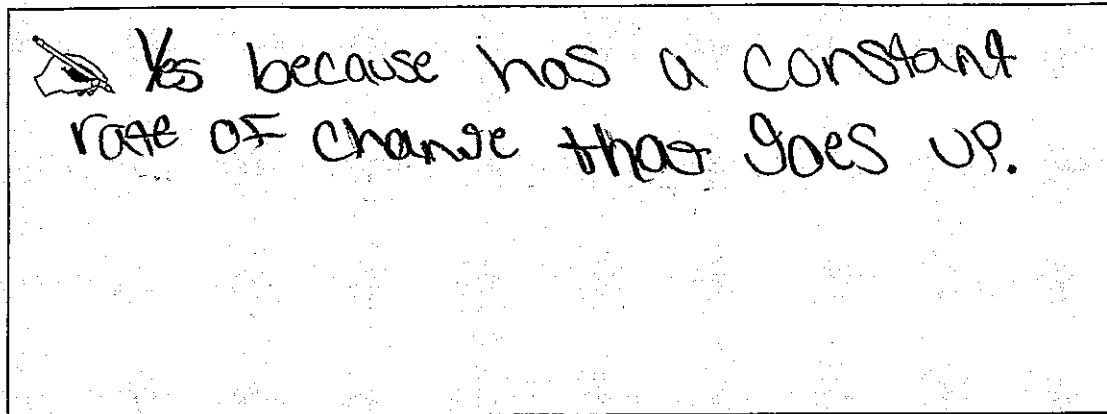 Yes because has a constant
rate of change that goes up.